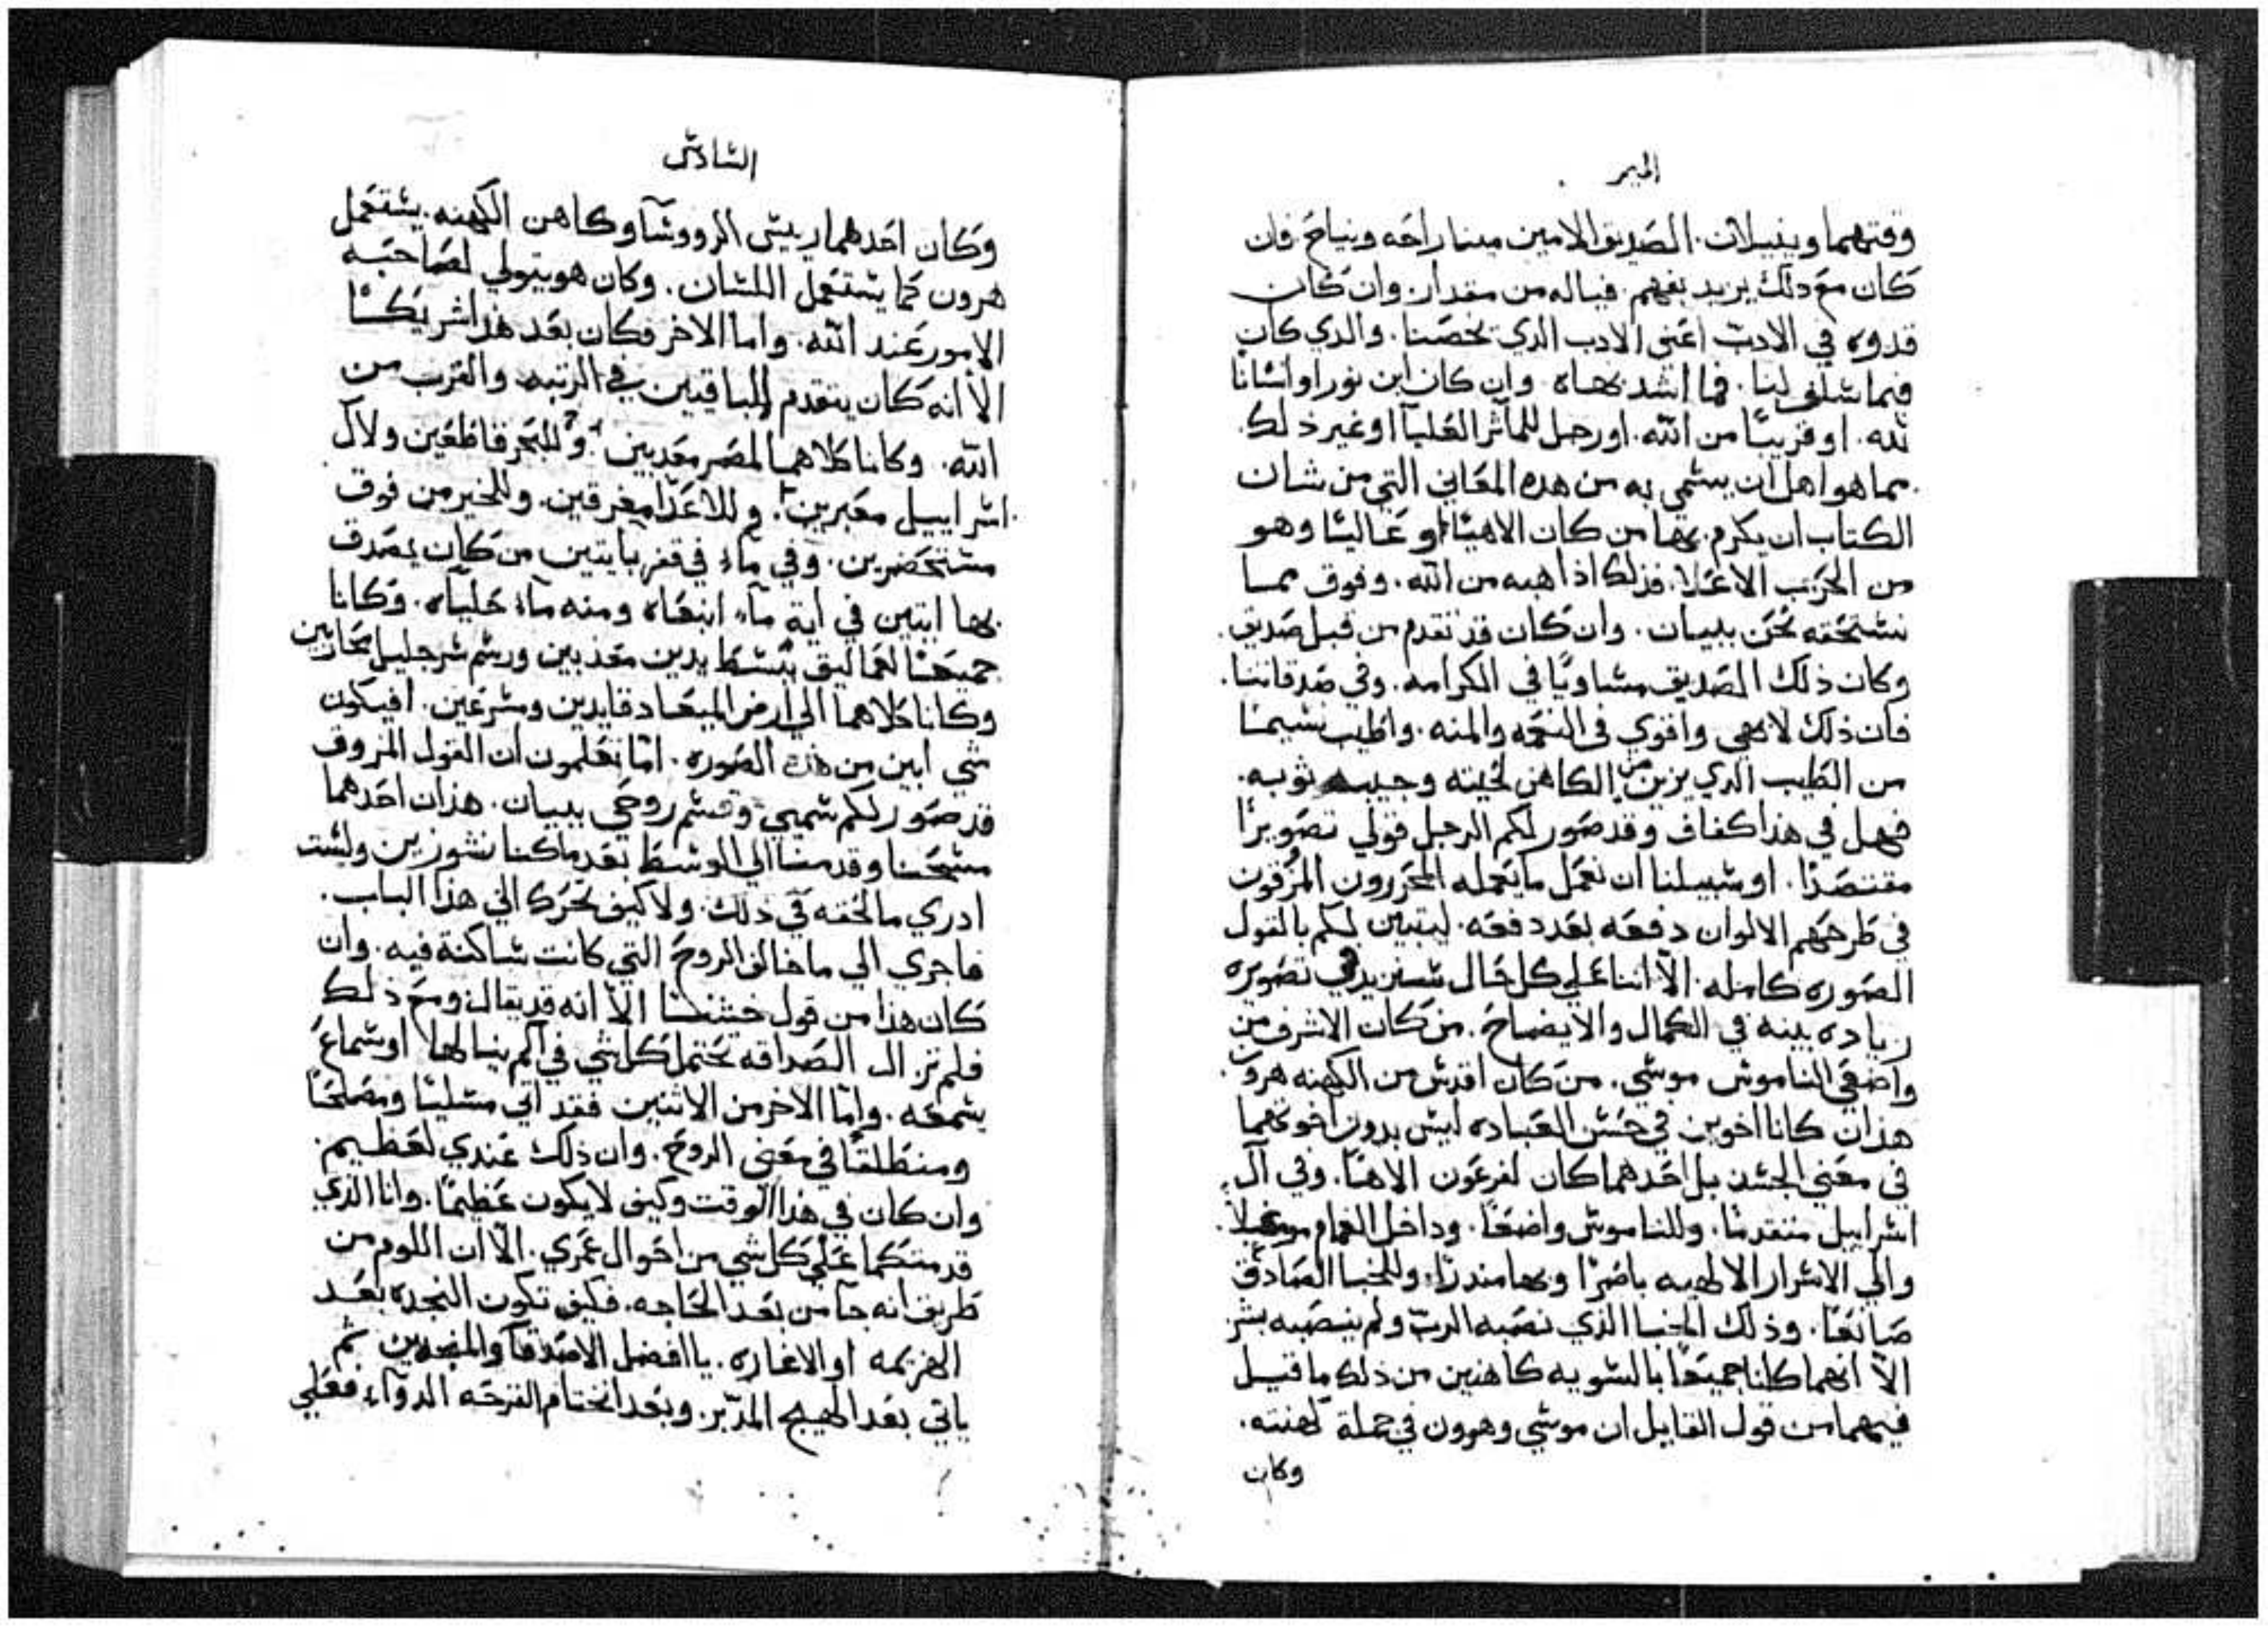 الميمر
وقتهما ويقبلان. الصديق الامين مينا راحه ونياح. فان
كان مع ذلك يزيد بفهم. فياله من مقدار. وان كان
قدوه في الادب اعني الادب الذي يخصنا. والدي كان
فيما سلف لنا. فما اشد بهاه. وان كان ابن نورا او انسانًا
لله. او قريبًا من الله. او رجل للمآثر العليآ او غير ذلك.
مما هو اهل ان يسمي به من هده المعاني التي من شان
الكتاب ان يكرم بها من كان الاهيًا او عاليًا وهو
من الحزب الاعلا. فذلك اذا هبه من الله. وفوق مما
نستحقه نحن ببيان. وان كان قد تقدم من قبل صديق.
وكان ذلك الصديق مساويًا في الكرامه. وفي صدقاتنا.
فان ذلك لابهي واقوي في النعمه والمنه. واطيب نسيمًا
من الطيب الدي يزين من الكاهن لحيته وجيب ثوبه.
فهل في هذا كفاف وقد صور لكم الرجل قولي تصويرًا
مقتصدًا. او سبيلنا ان نعمل ما يعمله المحررون المزوقون
في طرحهم الالوان دفعه بعد دفعه. ليتبين لكم بالقول
الصوره كامله. الّا اننا علي كل حال سنزيد في تصويره
زياده بينه في الكمال والايضاح. من كان الاشرف من
واضعي الناموس موسي. من كان اقدس من الكهنه هرون.
هذان كانا اخوين في حسن العباده ليس بدون اخوتهما
في معني الجسد بل احدهما كان لفرعون الاهًا. وفي آل
اسراييل متقدمًا. وللناموس واضعًا. وداخل الغمام موغلًا.
والي الاسرار الالهيه باصرًا وبها منذرًا. وللخبا الصادق
صانعًا. وذلك الخبا الذي نصبه الربّ ولم ينصبه بشر
الّا انهما كانا جميعًا بالسويه كاهنين من ذلك ما قيل
فيهما من قول القايل ان موسي وهرون في جملة كهنته.
وكان
السادس
وكان احدهما ريس الرووسآ وكاهن الكهنه. يستعمل
هرون كما يستعمل اللسان. وكان هو يتولي لصاحبه
الامور عند الله. واما الاخر فكان بعد هذا شريكًا
الّا انه كان يتقدم الباقيين في الرتبه والقرب من
الله. وكانا كلاهما لمصر معدبين. وللبحر قاطعين ولآل
اسراييل معبرين. وللاعدا مغرقين. وللخبز من فوق
مستحضرين. وفي مآء في قفر بايتين من كان يصدق
بها ايتين في اية مآء ابتغاه ومنه مآء حليآه. وكانا
جميعًا لعماليق ببسط يدين معذبين ورسم سر جليل محاربين
وكانا كلاهما الي ارض الميعاد قايدين ومسرعين. افيكون
شي ابين من هذه الصوره. اما تعلمون ان القول المزوق
قد صور لكم سميي وقسم روحي ببيان. هذان احدهما
مسحنا وقدمنا الي الوسط بعد ما كنا نشوزين ولست
ادري ما لحقه في ذلك. ولا كيف تحرك الي هذا الباب.
فاجري الي ما خالف الروح التي كانت ساكنة فيه. وان
كان هذا من قول خشنًا الّا انه قد يقال. ومع ذلك
فلم تزال الصداقه تحتمل كل شي في الم ينالها او سماع
يسمعه. وامّا الاخر من الاثنين فقد اتي مسليًا ومصلحًا
ومنطلقًا في معني الروح. وان ذلك عندي لعظيم.
وان كان في هذا الوقت وكيف لا يكون عظيمًا. وانا الذي
قد متكما علي كل شي من احوال عمري. الّا ان اللوم من
طريق انه جآ من بعد الحاجه. فكيف تكون النجده بعد
الهزيمه او الاغاره. يا افضل الاصدقآ والمنجدين ثم
ياتي بعد الهيج المدّبر. وبعد انختام القرحه الدوآء. فعلي